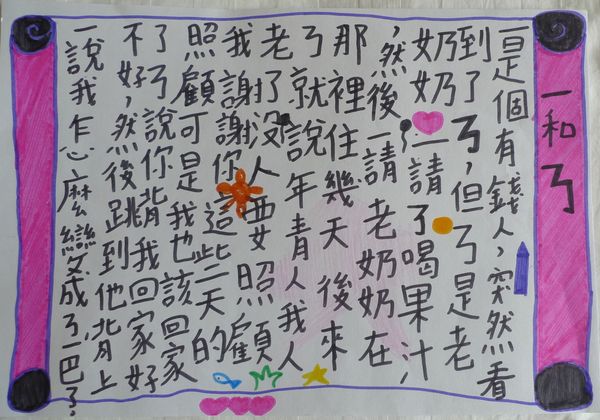 一和ㄋ
一是個有錢人,突然看
到了ㄋ,但ㄋ是老
奶奶,一請ㄋ喝果汁,
,然後一請老奶奶在
那裡住幾天後來
ㄋ就說年青人我人
老了沒人要照顧
我謝謝你這些天的
照顧可是我也該回家
了ㄋ說你背我回家好
不好,然後跳到他背上
一說我怎麼變成ㄋ一巴了?